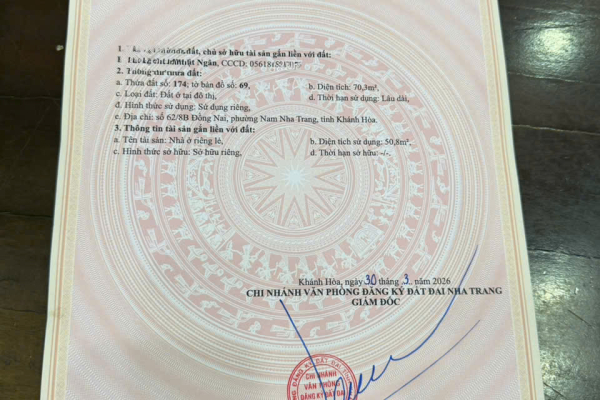 1. đất, chủ sở hữu tài sản gắn liền với đất:
Ngân, CCCD:
2. đất:
a. Thửa đất số: 174; tờ bản đồ số: 69, b. Diện tích: 70,3m²,
c. Loại đất: Đất ở tại đô thị, d. Thời hạn sử dụng: Lâu dài,
đ. Hình thức sử dụng: Sử dụng riêng,
e. Địa chỉ: số 62/8B Đồng Nai, phường Nam Nha Trang, tỉnh Khánh Hòa.
3. Thông tin tài sản gắn liền với đất:
a. Tên tài sản: Nhà ở riêng lẻ, b. Diện tích sử dụng: 50,8m²,
c. Hình thức sở hữu: Sở hữu riêng, d. Thời hạn sở hữu:-/-.
Khánh Hòa, ngày 30 tháng 3 năm 2026
CHI NHÁNH VĂN PHÒNG ĐĂNG KÝ ĐẤT ĐAI NHA TRANG
GIÁM ĐỐC
CHI NHÁNH
VĂN PHÒNG
ĐĂNG KÝ ĐẤT ĐAI